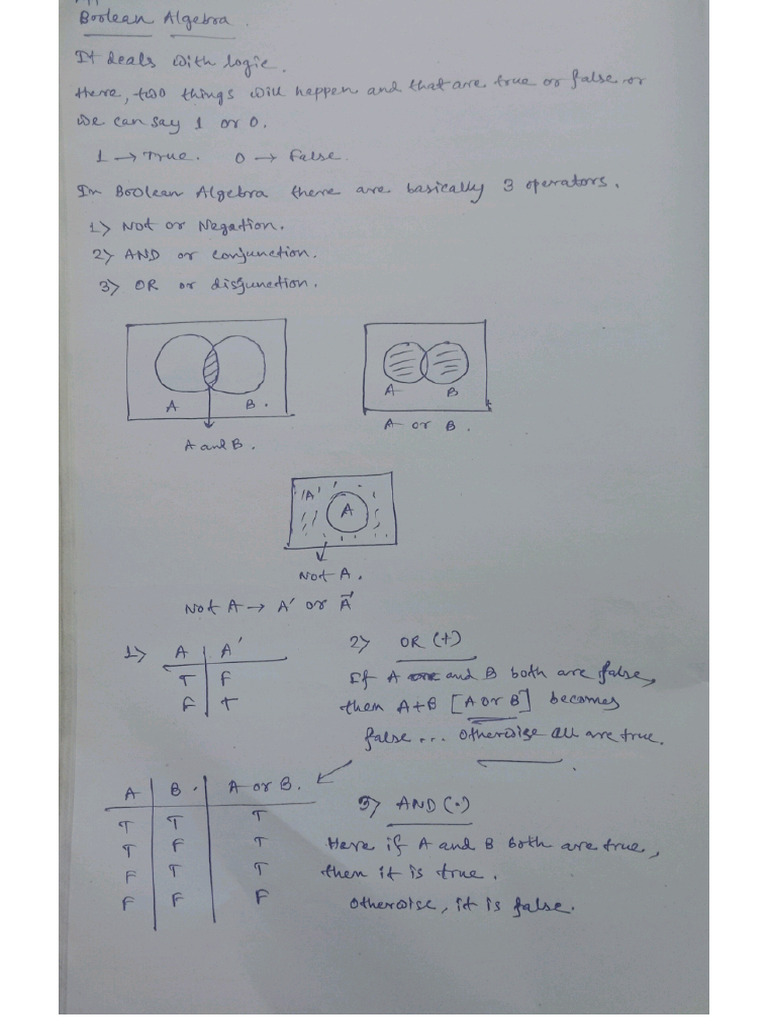 Boolean Algebra.
It deals with logic.
Here, two things will happen and that are true or false or
we can say 1 or 0.
1 → True. 0 → False.
In Boolean Algebra there are basically 3 operators.
1) Not or Negation.
2) AND or conjunction.
3) OR or disjunction.
A B.
A and B.
A B
A or B.
A' A
Not A.
Not A → A' or A⃗
1) A | A'
T | F
F | T
2) OR (+)
If A and B both are false,
then A+B [A or B] becomes
false... Otherwise all are true.
A | B. | A or B.
T | T | T
T | F | T
F | T | T
F | F | F
3) AND (·)
Here if A and B both are true,
then it is true.
Otherwise, it is false.